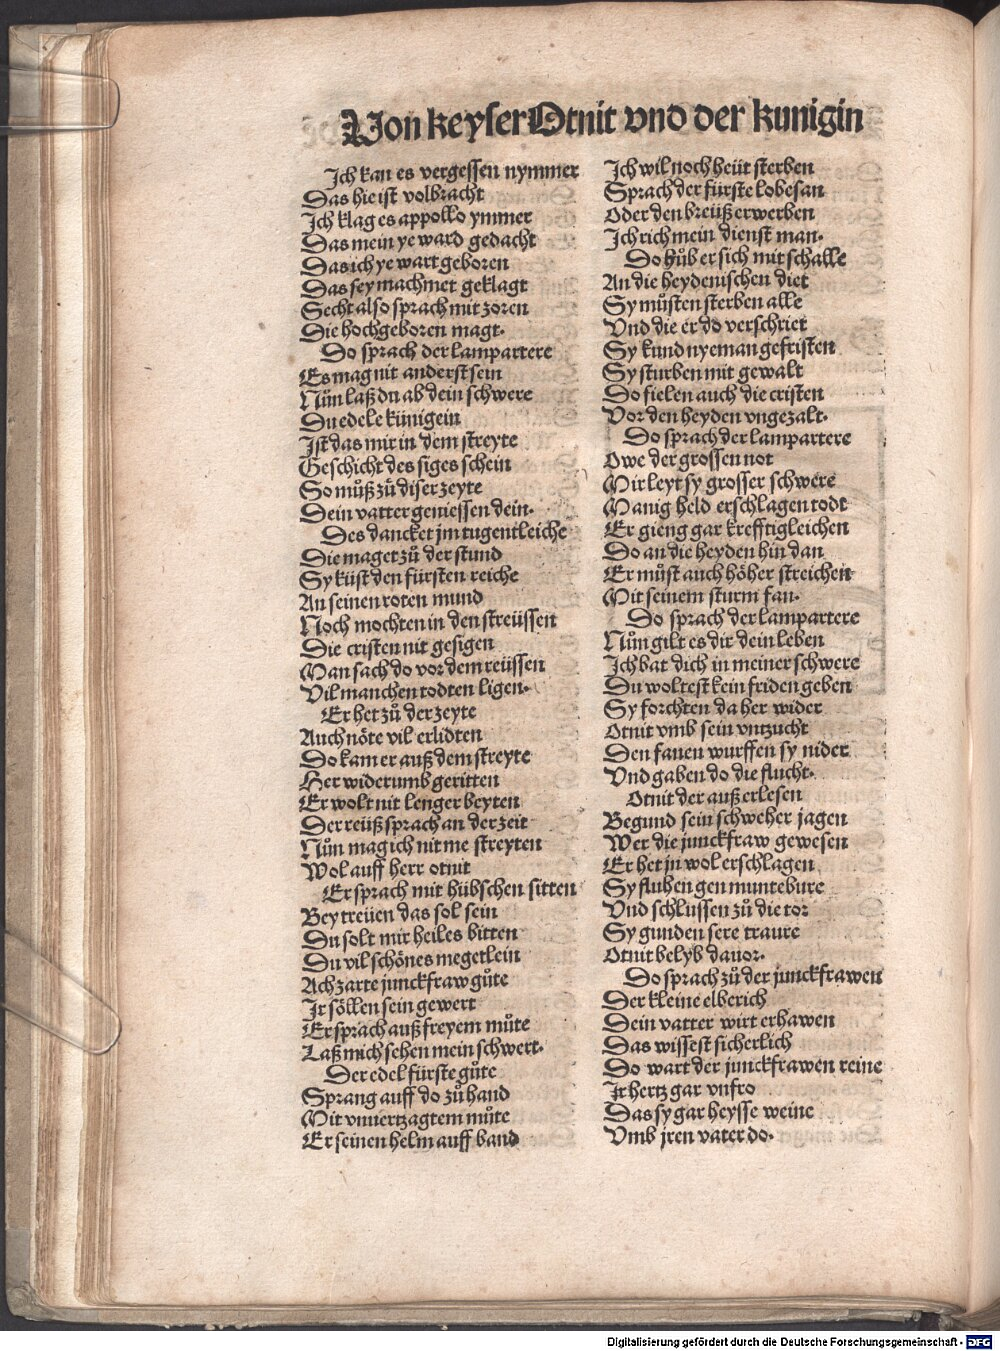 Von keyser Otnit vnd der kunigin
Ich kan es vergessen nymmer
Das hie ist volbracht
Ich klag es appollo ymmer
Das mein ye ward gedacht
Das ich ye wart geboren
Das sey machmet geklagt
Secht also sprach mit zoren
Die hochgeboren magt.
Do sprach der lampartere
Es mag nit anderst sein
Nůn laß du ab dein schwere
Du edele künigein
Ist das mir in dem streyte
Geschicht des siges schein
So můß zů diser zeyte
Dein vatter geniessen dein.
Des dancket jm tugentleiche
Die maget zů der stund
Sy küst den fürsten reiche
An seinen roten mund
Noch mochten in den streüssen
Die cristen nit gesigen
Man sach do vor dem reüssen
Vil manchen todten ligen.
Er het zů der zeyte
Auch nöte vil erlidten
Do kam er auß dem streyte
Her widerumb geritten
Er wolt nit lenger beyten
Der reüß sprach an der zeit
Nůn mag ich nit me streyten
Wol auff herr otnit
Er sprach mit hübschen sitten
Bey treüen das sol sein
Du solt mir heiles bitten
Du vil schönes megetlein
Ach zarte junckfraw gůte
Ir söllen sein gewert
Er sprach auß freyem můte
Laß mich sehen mein schwert.
Der edel fürste gůte
Sprang auff do zů hand
Mit vnuertzagtem můte
Er seinen helm auff band
Ich wil noch heüt sterben
Sprach der fürste lobesan
Oder den breüß erwerben
Ich rich mein dienst man.
Do hůb er sich mit schalle
An die heydenischen diet
Sy můsten sterben alle
Vnd die er do verschriet
Sy kund nyeman gefristen
Sy sturben mit gewalt
Do fielen auch die cristen
Vor den heyden vngezalt.
Do sprach der lampartere
Owe der grossen not
Mir leyt sy grosser schwere
Manig held erschlagen todt
Er gieng gar krefftigleichen
Do an die heyden hin dan
Er můst auch höher streichen
Mit seinem sturm fan.
Do sprach der lampartere
Nůn gilt es dir dein leben
Ich bat dich in meiner schwere
Du woltest kein friden geben
Sy forchten da her wider
Otnit vmb sein vntzucht
Den fanen wurffen sy nider
Vnd gaben do die flucht.
Otnit der auß erlesen
Begund sein schweher jagen
Wer die junckfraw gewesen
Er het jn wol erschlagen
Sy fluhen gen muntebure
Vnd schlussen zů die tor
Sy gunden sere traure
Otnit belyb dauor.
Do sprach zů der junckfrawen
Der kleine elberich
Dein vatter wirt erhawen
Das wissest sicherlich
Do wart der junckfrawen reine
Ir hertz gar vnfro
Das sy gar heysse weine
Vmb jren vater do.
Digitalisierung gefördert durch die Deutsche Forschungsgemeinschaft - DFG